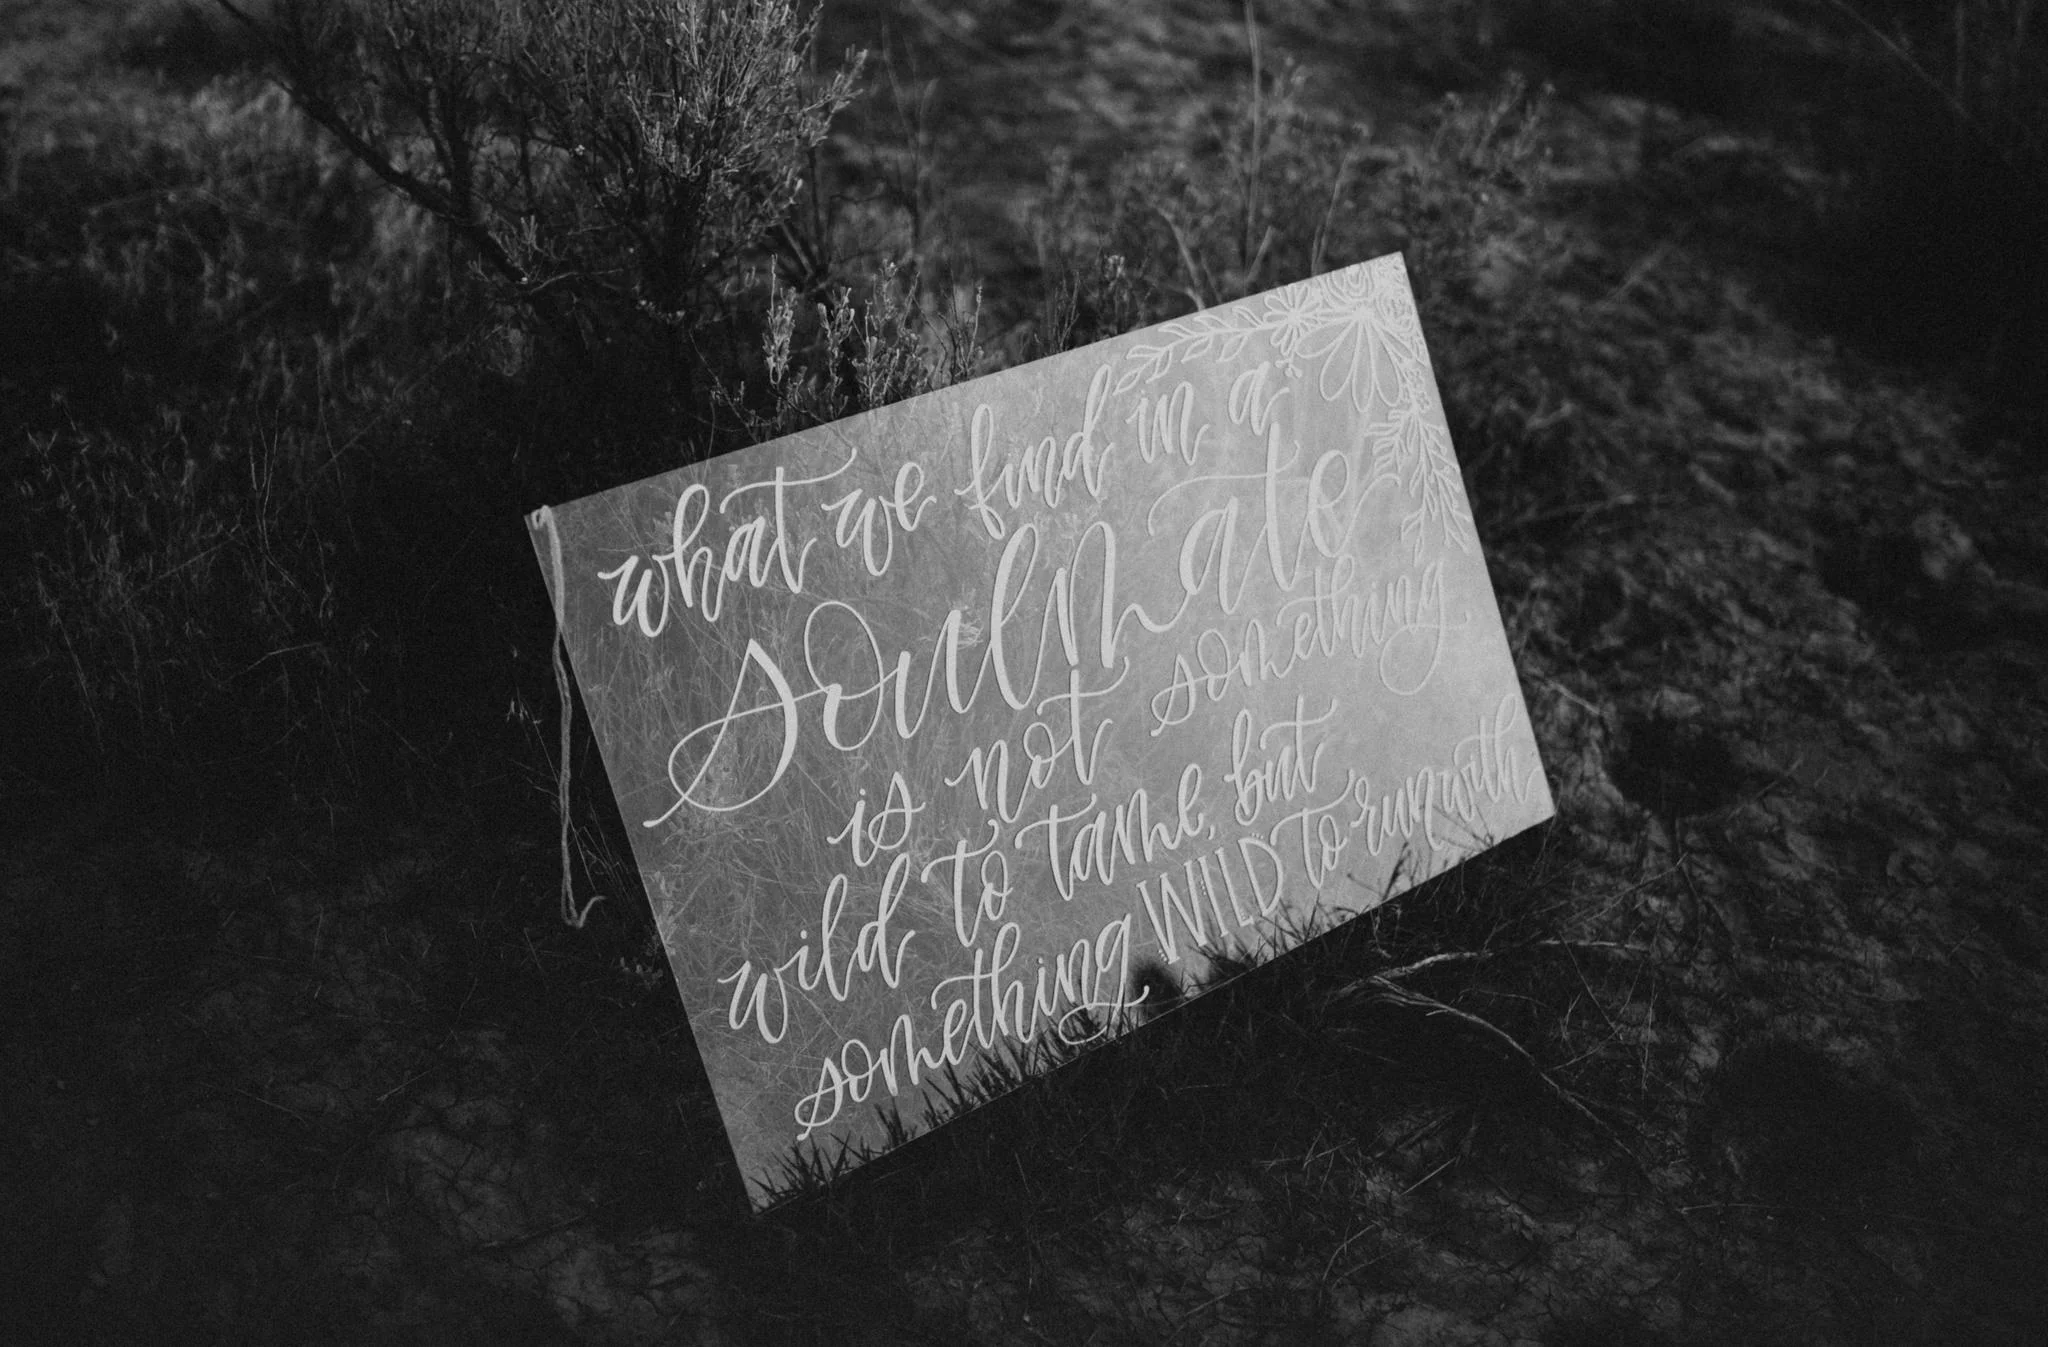 what we find in a
soulmate
is not something
wild to tame, but
something WILD to run with